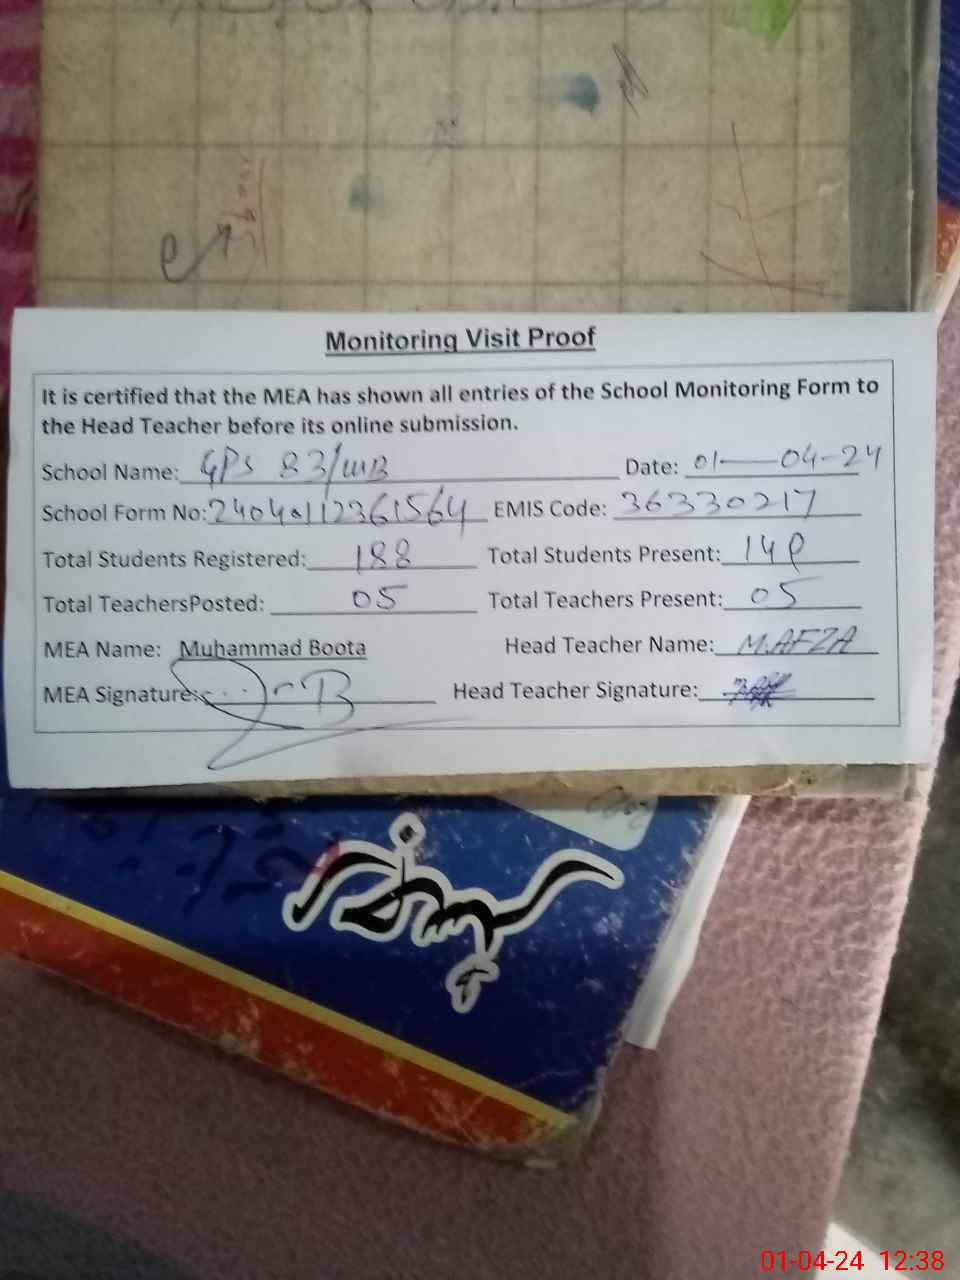 Monitoring Visit Proof
It is certified that the MEA has shown all entries of the School Monitoring Form to
the Head Teacher before its online submission.
School Name: GPS 83/WB Date: 01-04-24
School Form No: EMIS Code: 36330217
Total Students Registered: 188 Total Students Present:
Total TeachersPosted: 05 Total Teachers Present: 05
MEA Name: Muhammad Boota Head Teacher Name: M.AFZA
MEA Signature: Head Teacher Signature:
01-04-24 12:38